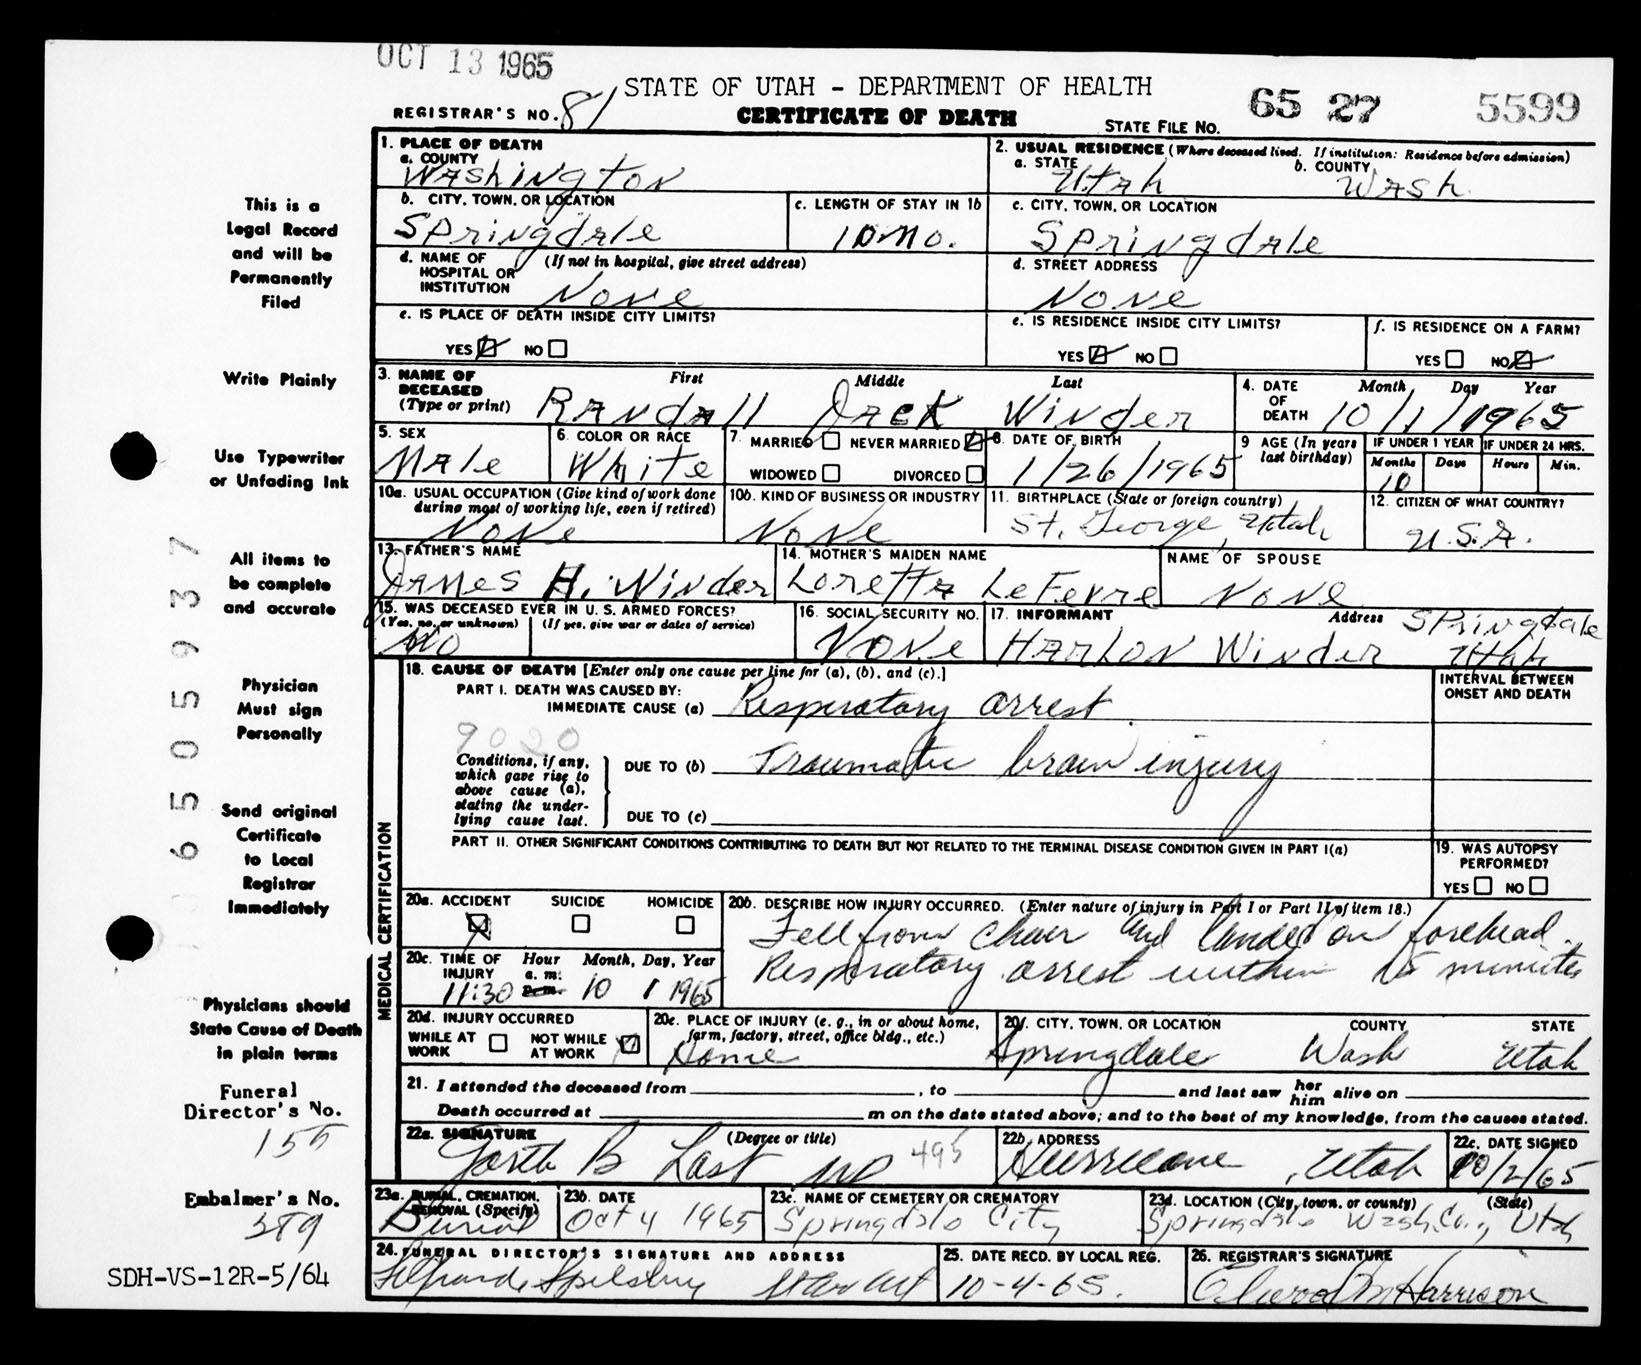 OCT 13 1965
STATE OF UTAH - DEPARTMENT OF HEALTH
REGISTRAR'S NO. 81
CERTIFICATE OF DEATH
STATE FILE NO. 65 27 5599
1. PLACE OF DEATH
a. COUNTY
Washington
2. USUAL RESIDENCE (Where deceased lived. If institution: Residence before admission)
a. STATE Utah b. COUNTY Wash.
b. CITY, TOWN, OR LOCATION
Springdale
c. LENGTH OF STAY IN 1b
10 mo.
c. CITY, TOWN, OR LOCATION
Springdale
d. NAME OF HOSPITAL OR INSTITUTION (If not in hospital, give street address)
None
d. STREET ADDRESS
None
e. IS PLACE OF DEATH INSIDE CITY LIMITS?
YES NO
e. IS RESIDENCE INSIDE CITY LIMITS?
YES NO
f. IS RESIDENCE ON A FARM?
YES NO
3. NAME OF DECEASED (Type or print)
First Middle Last
Randall Jack Winder
4. DATE OF DEATH Month Day Year
10/1/1965
5. SEX
Male
6. COLOR OR RACE
White
7. MARRIED NEVER MARRIED
WIDOWED DIVORCED
8. DATE OF BIRTH
1/26/1965
9 AGE (In years last birthday)
IF UNDER 1 YEAR IF UNDER 24 HRS.
Months Days Hours Min.
10
10a. USUAL OCCUPATION (Give kind of work done during most of working life, even if retired)
None
10b. KIND OF BUSINESS OR INDUSTRY
None
11. BIRTHPLACE (State or foreign country)
St. George, Utah
12. CITIZEN OF WHAT COUNTRY?
U.S.A.
13. FATHER'S NAME
James H. Winder
14. MOTHER'S MAIDEN NAME
Loretta LeFevre
NAME OF SPOUSE
None
15. WAS DECEASED EVER IN U. S. ARMED FORCES?
(Yes, no, or unknown) (If yes, give war or dates of service)
No
16. SOCIAL SECURITY NO.
None
17. INFORMANT Address
Harlon Winder Springdale Utah
18. CAUSE OF DEATH [Enter only one cause per line for (a), (b), and (c).]
INTERVAL BETWEEN ONSET AND DEATH
PART I. DEATH WAS CAUSED BY:
IMMEDIATE CAUSE (a) Respiratory arrest
9020
Conditions, if any, which gave rise to above cause (a), stating the underlying cause last.
DUE TO (b) Traumatic brain injury
DUE TO (c)
PART II. OTHER SIGNIFICANT CONDITIONS CONTRIBUTING TO DEATH BUT NOT RELATED TO THE TERMINAL DISEASE CONDITION GIVEN IN PART I(a)
19. WAS AUTOPSY PERFORMED?
YES NO
20a. ACCIDENT SUICIDE HOMICIDE
20b. DESCRIBE HOW INJURY OCCURRED. (Enter nature of injury in Part I or Part II of item 18.)
Fell from chair and landed on forehead.
Respiratory arrest within 15 minutes
20c. TIME OF INJURY Hour Month, Day, Year
a. m. p.m.
11:30 10 1 1965
20d. INJURY OCCURRED
WHILE AT WORK NOT WHILE AT WORK
20e. PLACE OF INJURY (e. g., in or about home, farm, factory, street, office bldg., etc.)
Home
20f. CITY, TOWN, OR LOCATION COUNTY STATE
Springdale Wash Utah
21. I attended the deceased from , to and last saw her him alive on
Death occurred at m on the date stated above; and to the best of my knowledge, from the causes stated.
22a. SIGNATURE (Degree or title)
Garth B Last MD 495
22b. ADDRESS
Hurricane, Utah
22c. DATE SIGNED
10/2/65
23a. BURIAL, CREMATION, REMOVAL (Specify)
Burial
23b. DATE
Oct 4 1965
23c. NAME OF CEMETERY OR CREMATORY
Springdale City
23d. LOCATION (City, town, or county) (State)
Springdale Wash. Co., Utah
24. FUNERAL DIRECTOR'S SIGNATURE AND ADDRESS
Spilsbury
25. DATE RECD. BY LOCAL REG.
10-4-65.
26. REGISTRAR'S SIGNATURE
Harrison
MEDICAL CERTIFICATION
This is a
Legal Record
and will be
Permanently
Filed
Write Plainly
Use Typewriter
or Unfading Ink
All items to
be complete
and accurate
Physician
Must sign
Personally
Send original
Certificate
to Local
Registrar
Immediately
Physicians should
State Cause of Death
in plain terms
Funeral
Director's No.
155
Embalmer's No.
389
SDH-VS-12R-5/64